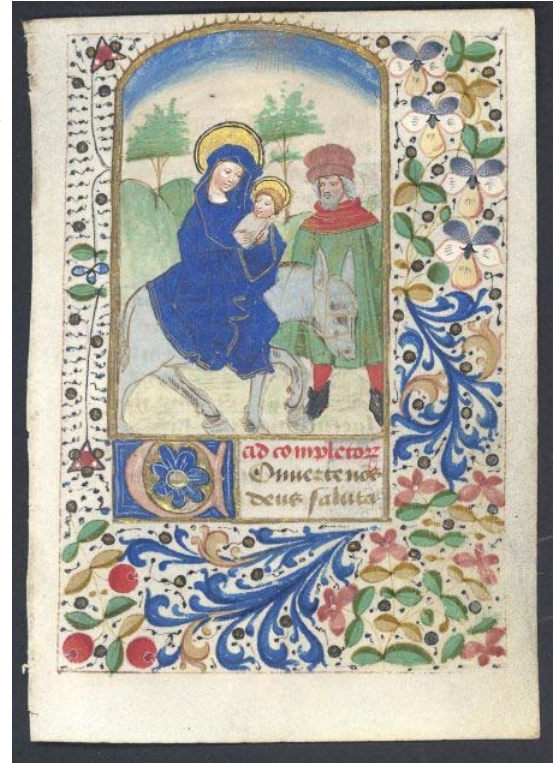 ad completorz
Onuertenos
deus saluta